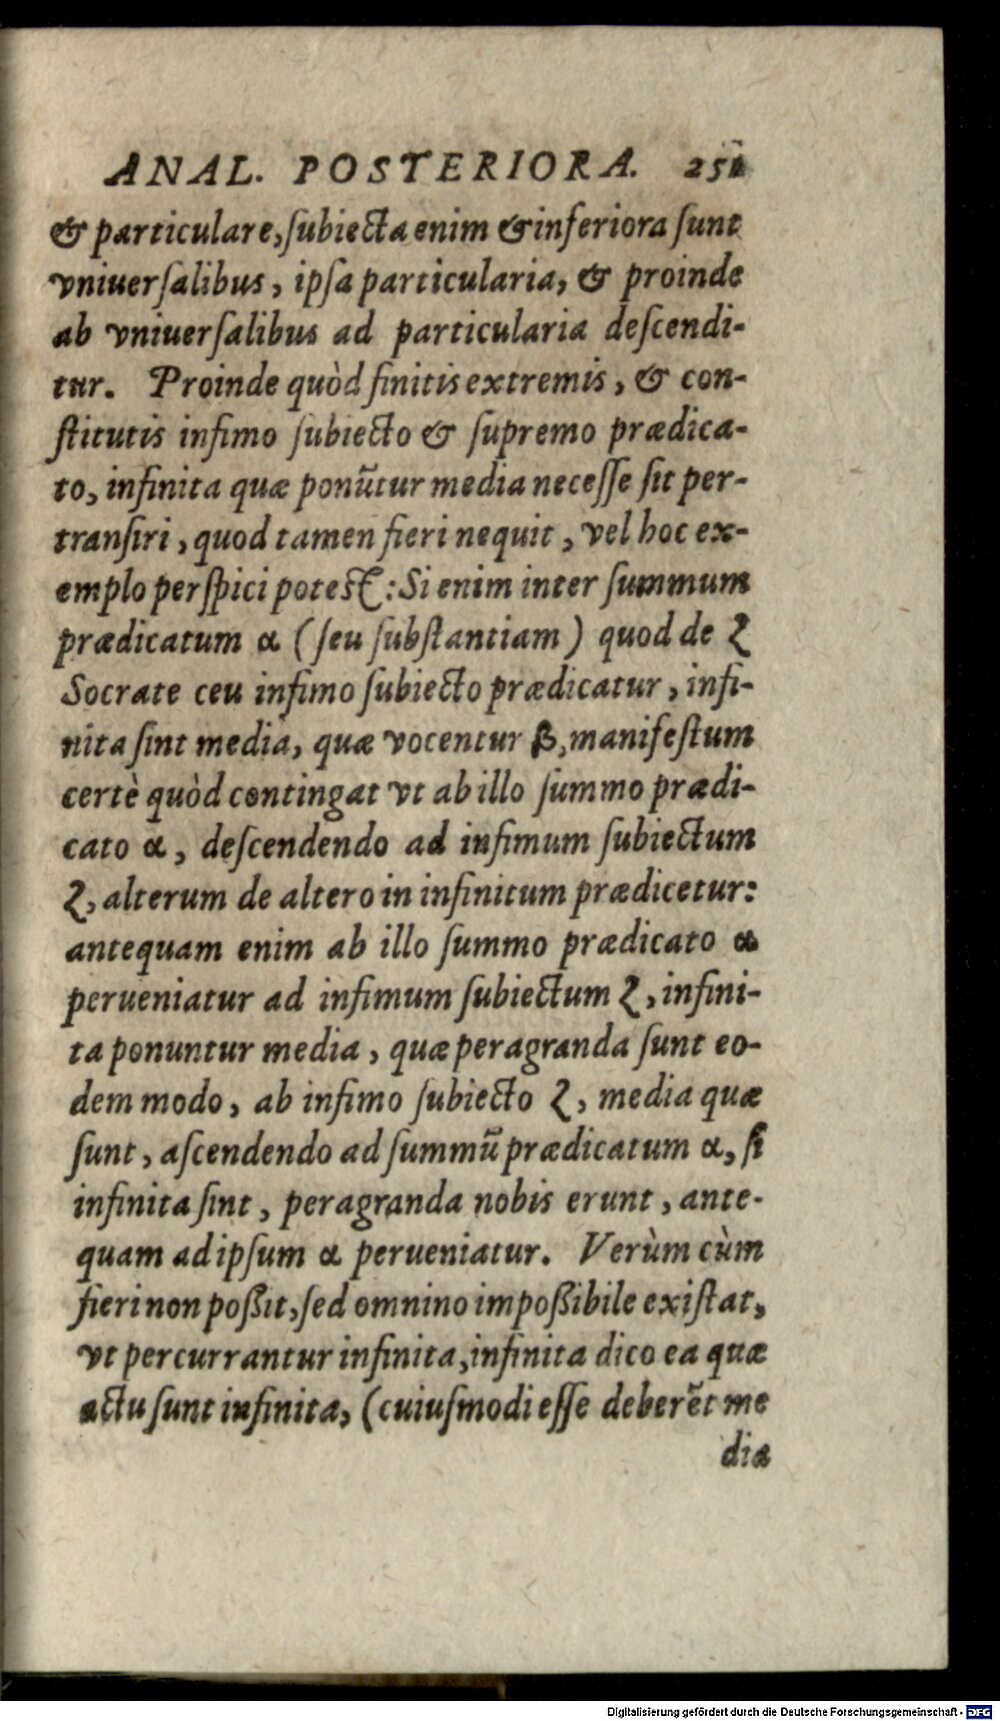 ANAL. POSTERIORA. 251
& particulare, ſubiecta enim & inferiora ſunt
vniuerſalibus, ipſa particularia, & proinde
ab vniuerſalibus ad particularia deſcendi-
tur. Proinde quòd finitis extremis, & con-
ſtitutis infimo ſubiecto & ſupremo prædica-
to, infinita quæ ponūtur media neceſſe ſit per-
tranſiri, quod tamen fieri nequit, vel hoc ex-
emplo perſpici poteſt: Si enim inter ſummum
prædicatum α (ſeu ſubſtantiam) quod de ζ
Socrate ceu infimo ſubiecto prædicatur, infi-
nita ſint media, quæ vocentur β, manifeſtum
certè quòd contingat vt ab illo ſummo prædi-
cato α, deſcendendo ad infimum ſubiectum
ζ, alterum de altero in infinitum prædicetur:
antequam enim ab illo ſummo prædicato α
perueniatur ad infimum ſubiectum ζ, infini-
ta ponuntur media, quæ peragranda ſunt eo-
dem modo, ab infimo ſubiecto ζ, media quæ
ſunt, aſcendendo ad ſummū prædicatum α, ſi
infinita ſint, peragranda nobis erunt, ante-
quam ad ipſum α perueniatur. Verùm cùm
fieri non poßit, ſed omnino impoßibile exiſtat,
vt percurrantur infinita, infinita dico ea quæ
actu ſunt infinita, (cuiuſmodi eſſe deberēt me
dia
Digitalisierung gefördert durch die Deutsche Forschungsgemeinschaft - DFG